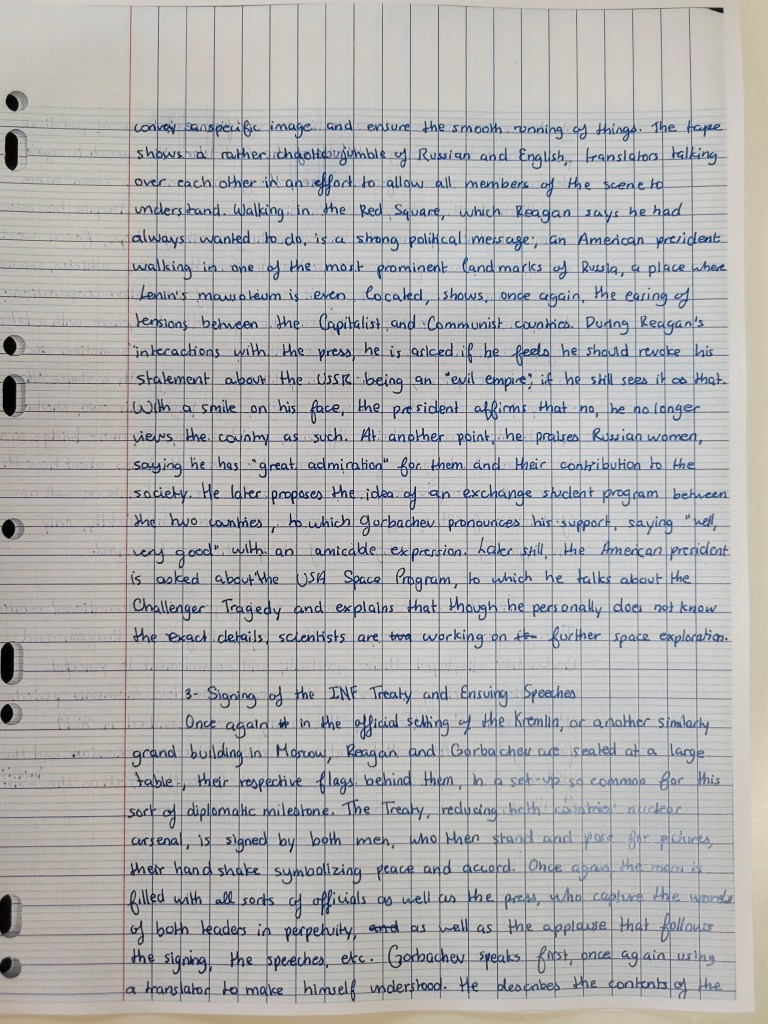 convey a specific image and ensure the smooth running of things. The tape
shows a rather chaotic jumble of Russian and English, translators talking
over each other in an effort to allow all members of the scene to
understand. Walking in the Red Square, which Reagan says he had
always wanted to do, is a strong political message; an American president
walking in one of the most prominent landmarks of Russia, a place where
Lenin's mausoleum is even located, shows, once again, the easing of
tensions between the Capitalist and Communist countries. During Reagan's
interactions with the press, he is asked if he feels he should revoke his
statement about the USSR being an "evil empire", if he still sees it as that.
With a smile on his face, the president affirms that no, he no longer
views the country as such. At another point, he praises Russian women,
saying he has "great admiration" for them and their contribution to the
society. He later proposes the idea of an exchange student program between
the two countries, to which Gorbachev pronounces his support, saying "well,
very good" with an amicable expression. Later still, the American president
is asked about the USA Space Program, to which he talks about the
Challenger Tragedy and explains that though he personally does not know
the exact details, scientists are working on further space exploration.
3- Signing of the INF Treaty and Ensuing Speeches
Once again in the official setting of the Kremlin, or another similarly
grand building in Moscow, Reagan and Gorbachev are seated at a large
table, their respective flags behind them, in a set-up so common for this
sort of diplomatic milestone. The Treaty, reducing both countries' nuclear
arsenal, is signed by both men, who then stand and pose for pictures,
their handshake symbolizing peace and accord. Once again the room is
filled with all sorts of officials as well as the press, who capture the words
of both leaders in perpetuity, as well as the applause that follows
the signing, the speeches, etc. Gorbachev speaks first, once again using
a translator to make himself understood. He describes the contents of the